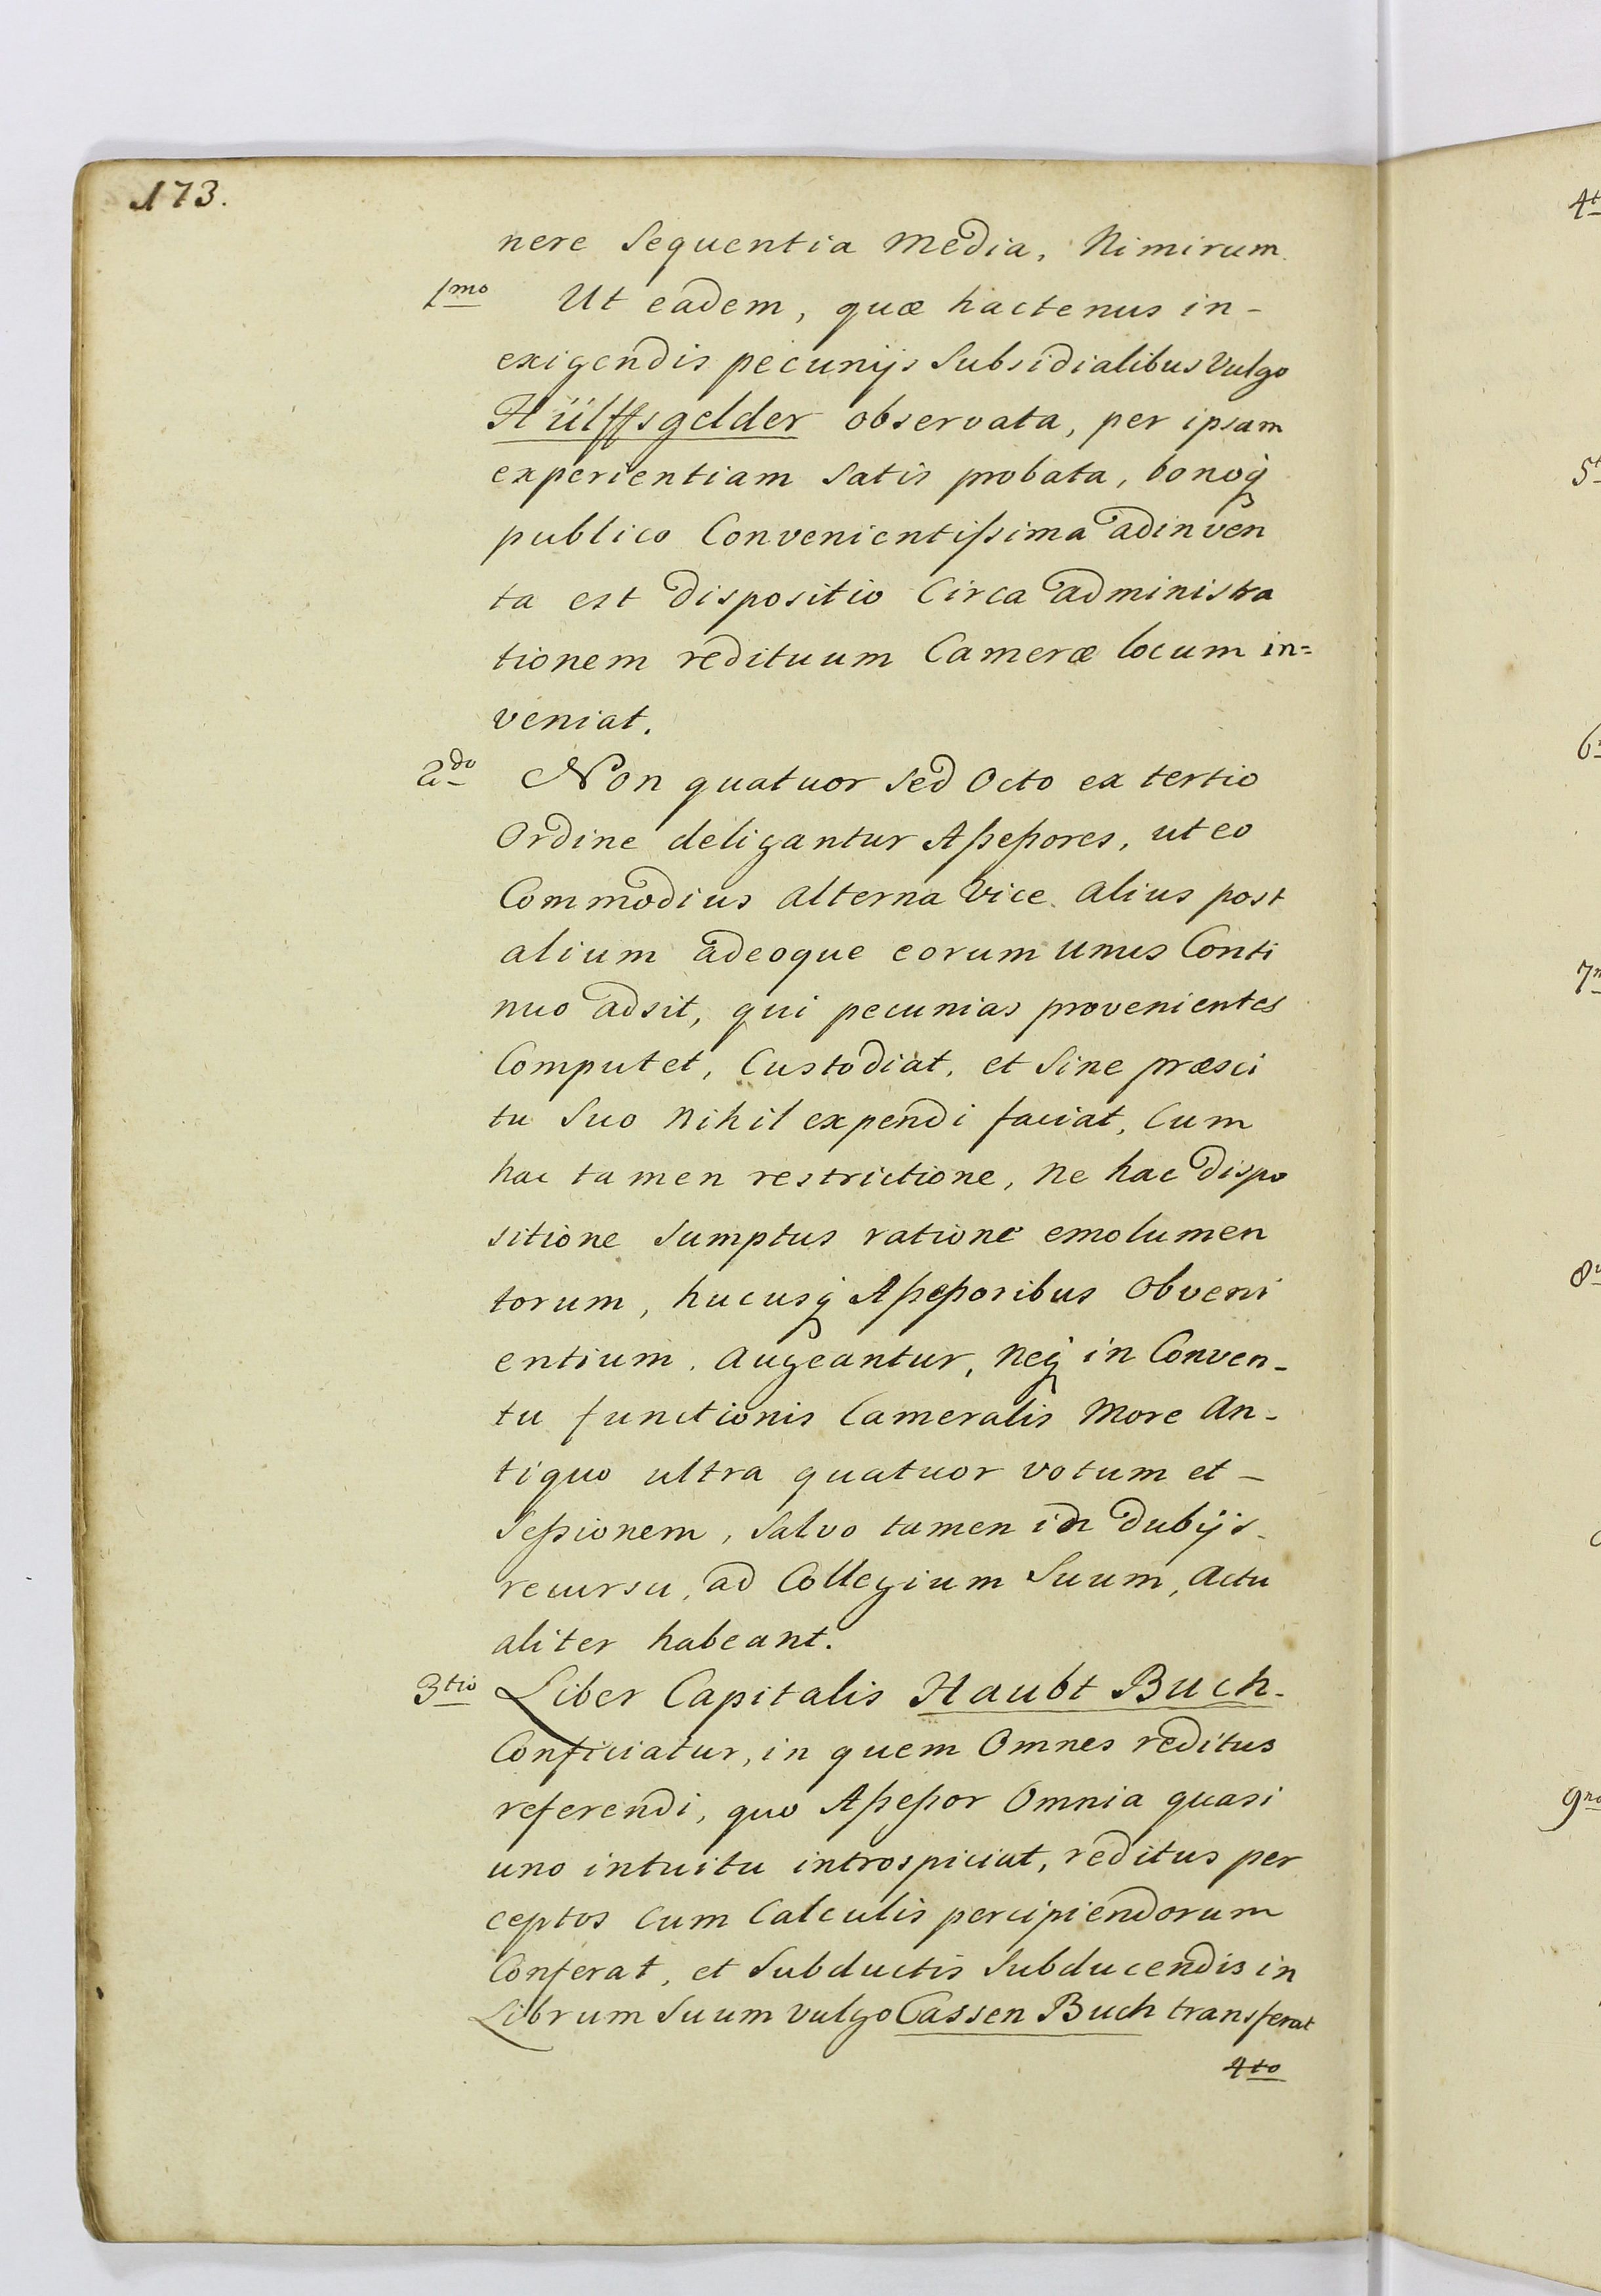 173.
nere Sequentia Media, Nimirum
1mo Ut eadem, quæ hactenus in-
exigendis pecunijs Subsidialibus Vulgo
Hülffsgelder observata, per ipsam
experientiam satis probata, bonoq
publico Convenientißima adinven
ta est dispositio Circa administra
tionem redituum Cameræ locum in=
veniat.
2do Non quatuor sed Octo ex tertio
Ordine deligantur Aßeßores, ut eo
Commodius alterna Vice alius post
alium adeoque eorum unus Conti
nuo adsit, qui pecunias provenientes
Computet, Custodiat, et Sine præsci
tu Suo Nihil expendi faciat, Cum
hac tamen restrictione, Ne hac dispo
sitione Sumptus ratione emolumen
torum, hucusq Aßeßoribus Obveni
entium. Augeantur, Neq in Conven-
tu functionis Cameralis More An-
tiquo ultra quatuor votum et -
Seßionem, Salvo tamen in dubijs-
recursu, ad Collegium Suum, Actu
aliter habeant.
3tio Liber Capitalis Haubt Buch-
Conficiatur, in quem Omnes reditus
referendi, quo Aßeßor Omnia quasi
uno intuitu introspiciat, reditus per
ceptos Cum Calculis percipiendorum
Conferat, et Subductis Subducendis in
Librum Suum vulgo Cassen Buch transferat
4to
4t
5t
6
7m
8
9no